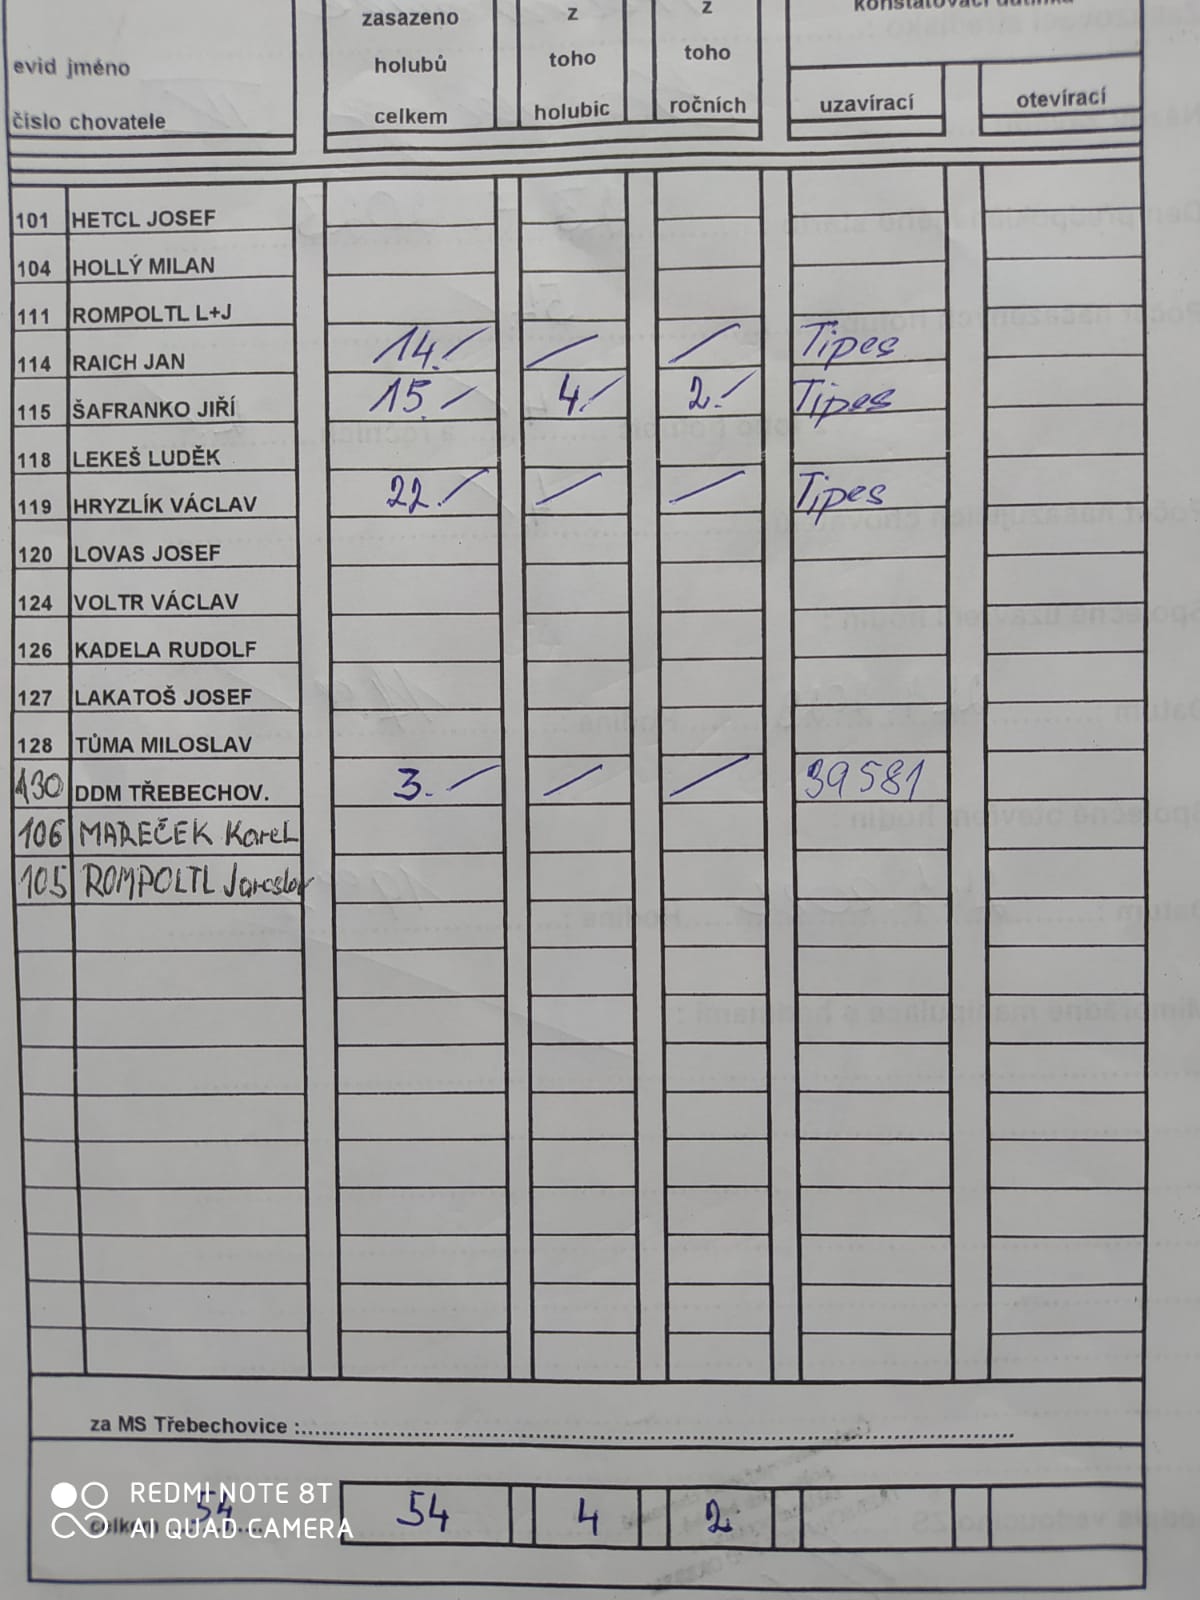 zasazeno z z
evid jméno holubů toho toho
číslo chovatele celkem holubic ročních uzavírací otevírací
101 HETCL JOSEF
104 HOLLÝ MILAN
111 ROMPOLTL L+J
114 RAICH JAN 14./ / / Tipes
115 ŠAFRANKO JIŘÍ 15./ 4./ 2./ Tipes
118 LEKEŠ LUDĚK
119 HRYZLÍK VÁCLAV 22./ / / Tipes
120 LOVAS JOSEF
124 VOLTR VÁCLAV
126 KADELA RUDOLF
127 LAKATOŠ JOSEF
128 TŮMA MILOSLAV
130 DDM TŘEBECHOV. 3./ / / 39581
106 MAREČEK Karel
105 ROMPOLTL Jaroslav
za MS Třebechovice :
celkem 54 54 4 2
REDMI NOTE 8T
AI QUAD CAMERA